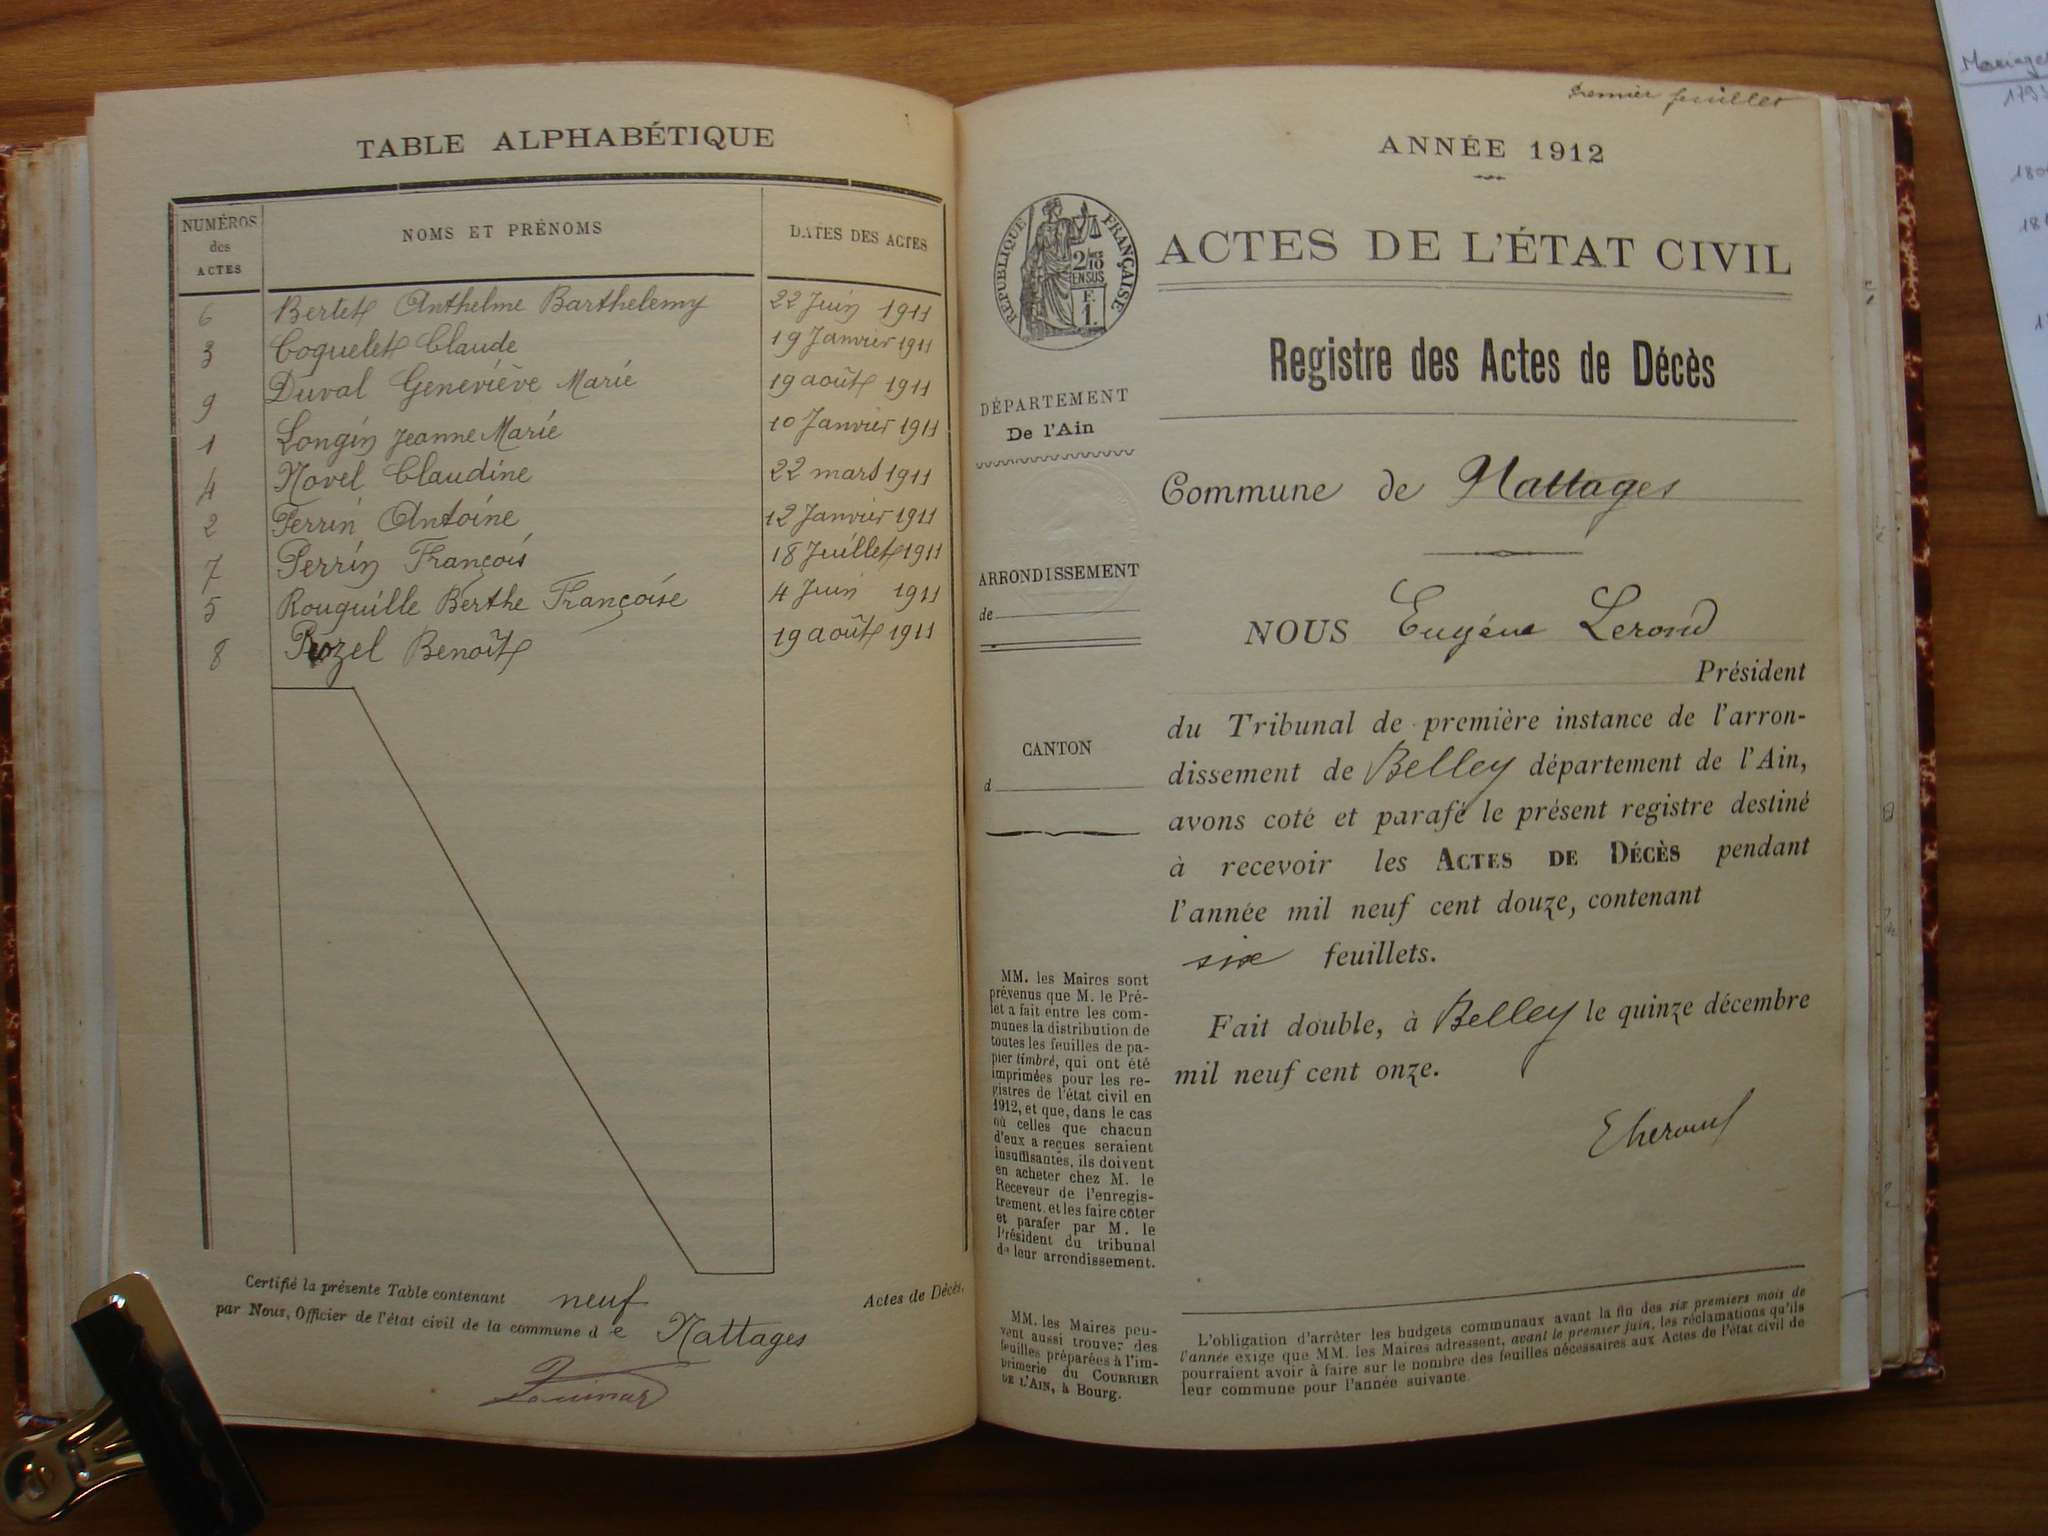 TABLE ALPHABÉTIQUE
NUMÉROS des ACTES
NOMS ET PRÉNOMS
DATES DES ACTES
6 Bertet Anthelme Barthelemy 22 Juin 1911
3 Coquelet Claude 19 Janvier 1911
9 Duval Geneviève Marie 19 août 1911
1 Longin Jeanne Marie 10 Janvier 1911
4 Novel Claudine 22 mars 1911
2 Perrin Antoine 12 Janvier 1911
7 Perrin François 18 Juillet 1911
5 Rouguille Berthe Françoise 4 Juin 1911
8 Benoît 19 août 1911
Certifié la présente Table contenant neuf Actes de Décès,
par Nous, Officier de l'état civil de la commune de Nattages
Premier feuillet
ANNÉE 1912
RÉPUBLIQUE FRANÇAISE
2/10 EN SUS
F. 1.
ACTES DE L'ÉTAT CIVIL
Registre des Actes de Décès
DÉPARTEMENT
De l'Ain
Commune de Nattages
ARRONDISSEMENT
de
NOUS Eugène Lerond
Président
du Tribunal de première instance de l'arron-
dissement de Belley département de l'Ain,
avons coté et parafé le présent registre destiné
à recevoir les ACTES DE DÉCÈS pendant
l'année mil neuf cent douze, contenant
six feuillets.
CANTON
d
Fait double, à Belley le quinze décembre
mil neuf cent onze.
MM. les Maires sont
prévenus que M. le Pré-
fet a fait entre les com-
munes la distribution de
toutes les feuilles de pa-
pier timbré, qui ont été
imprimées pour les re-
gistres de l'état civil en
1912, et que, dans le cas
où celles que chacun
d'eux a reçues seraient
insuffisantes, ils doivent
en acheter chez M. le
Receveur de l'enregis-
trement et les faire coter
et parafer par M. le
Président du tribunal
de leur arrondissement.
MM. les Maires peu-
vent aussi trouver des
feuilles préparées à l'im-
primerie du COURRIER
DE L'AIN, à Bourg.
L'obligation d'arrêter les budgets communaux avant la fin des six premiers mois de
l'année exige que MM. les Maires adressent, avant le premier juin, les réclamations qu'ils
pourraient avoir à faire sur le nombre des feuilles nécessaires aux Actes de l'état civil de
leur commune pour l'année suivante.